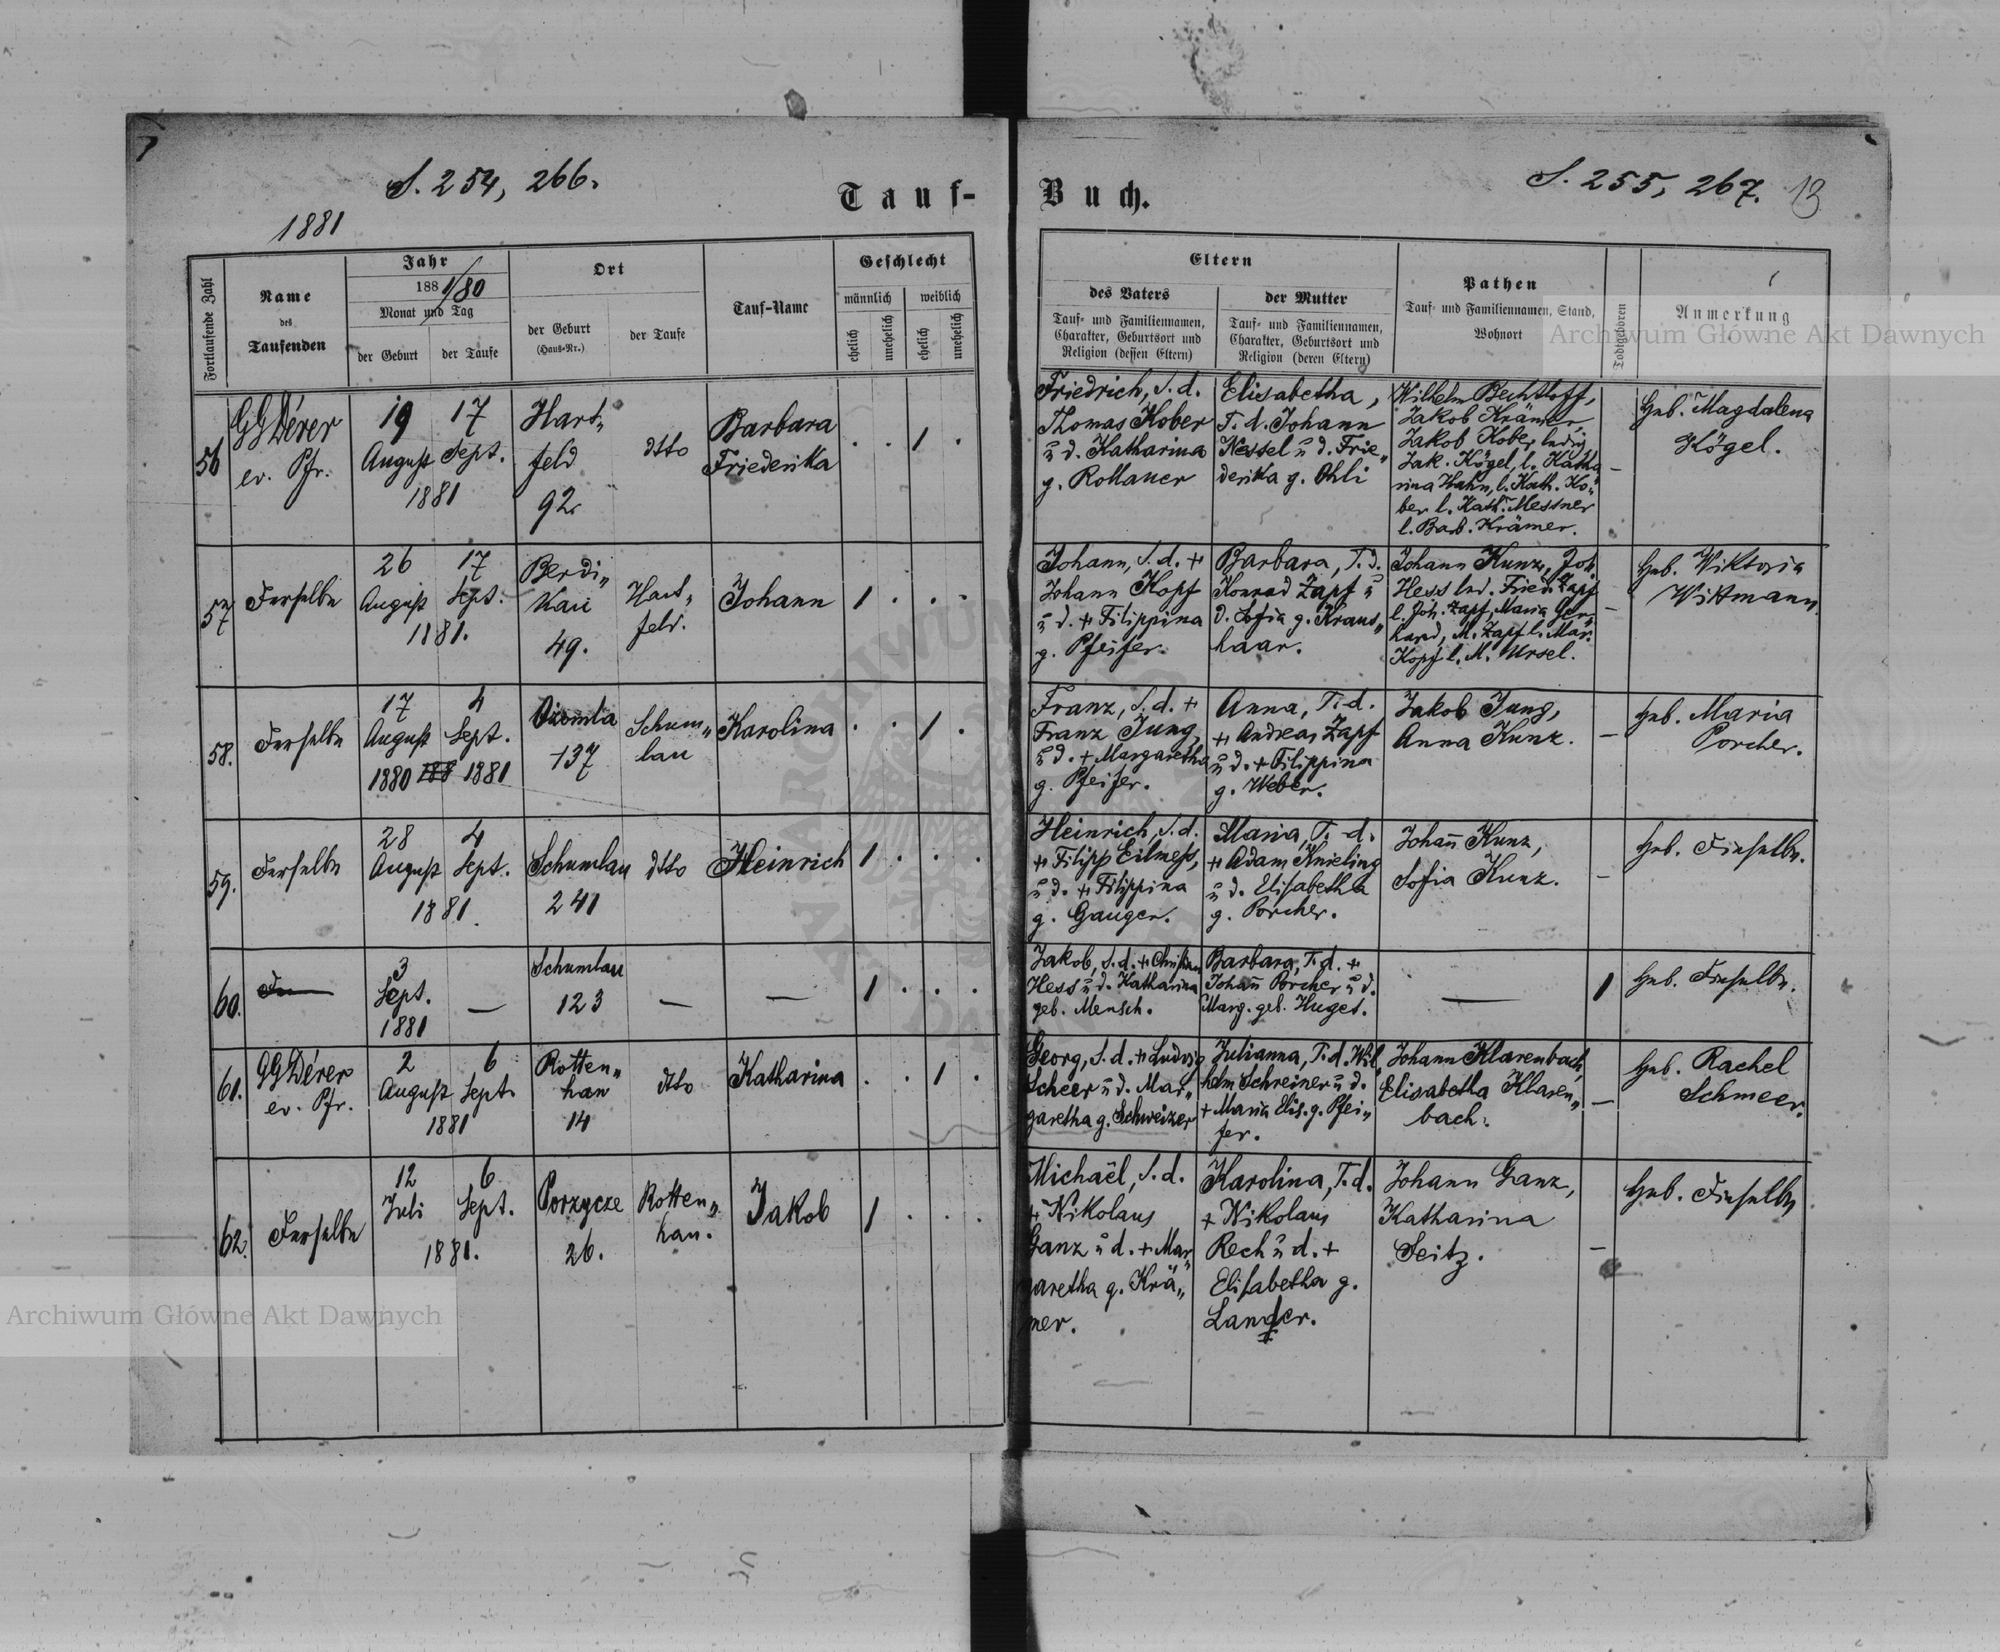 S. 254, 266.
1881
Tauf-
Fortlaufende Zahl
Name
des
Taufenden
Jahr
188 1/80
Monat und Tag
der Geburt
der Taufe
Ort
der Geburt
(Haus-Nr.)
der Taufe
Tauf-Name
Geschlecht
männlich
weiblich
ehelich
unehelich
ehelich
unehelich
56
GGDérer
ev. Pfr.
19 17
August Sept.
1881
Hart„
feld
92
dtto
Barbara
Friederika
. . 1 .
57
Derselbe
26 17
August Sept.
1881.
Berdi„
kau
49.
Hart„
feld.
Johann
1 . . .
58.
Derselbe
17 4
August Sept.
1880 188 1881
Ozomla
137
Schum„
lau
Karolina
. . 1 .
59.
Derselbe
28 4
August Sept.
1881.
Schumlau
241
dtto
Heinrich
1 . . .
60.
3
Sept.
1881
—
Schumlau
123
—
—
1 . . .
61.
GGDérer
ev. Pfr.
2 6
August Sept.
1881
Rotten„
han
14
dtto
Katharina
. . 1 .
62.
Derselbe
12 6
Juli Sept.
1881.
Porzycze
26.
Rotten„
han.
Jakob
1 . . .
Buch.
S. 255, 267. 13
Eltern
des Vaters
Tauf- und Familiennamen,
Charakter, Geburtsort und
Religion (dessen Eltern)
der Mutter
Tauf- und Familiennamen,
Charakter, Geburtsort und
Religion (deren Eltern)
Pathen
Tauf- und Familiennamen, Stand,
Wohnort
Todtgeboren
Anmerkung
Friedrich, S. d.
Thomas Kober
u d. Katharina
g. Rollauer
Elisabetha,
T. d. Johann
Nessel u d. Frie„
derika g. Ohli
Wilhelm Bechtloff,
Jakob Krämer,
Jakob Kober ledig
Jak. Kögel, l. Katha
rina Hahn, l. Kath. Ko„
ber l. Kath. Messner
l. Barb. Krämer.
—
Heb. Magdalena
Kögel.
Johann, S. d. +
Johann Kopf
u d. + Filippina
g. Pfeifer.
Barbara, T. d.
Konrad Zapf u
d. Sofia g. Kraus„
haar.
Johann Kunz, Joh.
Hess led. Fried. Zapf
l. Joh. Zapf, Maria Ger„
hard, M. Zapf l. Mar.
Kopf l. M. Ursel.
—
Heb. Wiktoria
Wittmann
Franz, S. d. +
Franz Jung,
u d. + Margaretha
g. Pfeifer.
Anna, T. d.
+ Andreas Zapf
u d. + Filippina
g. Weber.
Jakob Jung,
Anna Kunz.
—
Heb. Maria
Porcher.
Heinrich, S. d.
+ Filipp Eilmess,
u d. + Filippina
g. Gauger.
Maria, T. d.
+ Adam Knieling
u d. Elisabetha
g. Porcher.
Johann Kunz,
Sofia Kunz.
—
Heb. Dieselbe.
Jakob, S. d. + Christian
Hess u d. Katharina
geb. Mensch.
Barbara, T. d. +
Johann Porcher u d.
Marg. geb. Huget.
—
1
Heb. Dieselbe.
Georg, S. d. + Ludwig
Scheer u d. Mar„
garetha g. Schweizer
Julianna, T. d. Wil„
helm Schreiner u d.
+ Maria Elis. g. Pfei„
fer.
Johann Klarenbach,
Elisabetha Klaren„
bach.
—
Heb. Rachel
Schmeer.
Michaël, S. d.
+ Nikolaus
Ganz u d. + Mar„
garetha g. Krä„
mer.
Karolina, T. d.
+ Nikolaus
Rech u d. +
Elisabetha g.
Langer.
Johann Ganz,
Katharina
Seitz.
—
Heb. Dieselbe
Archiwum Główne Akt Dawnych
Archiwum Główne Akt Dawnych